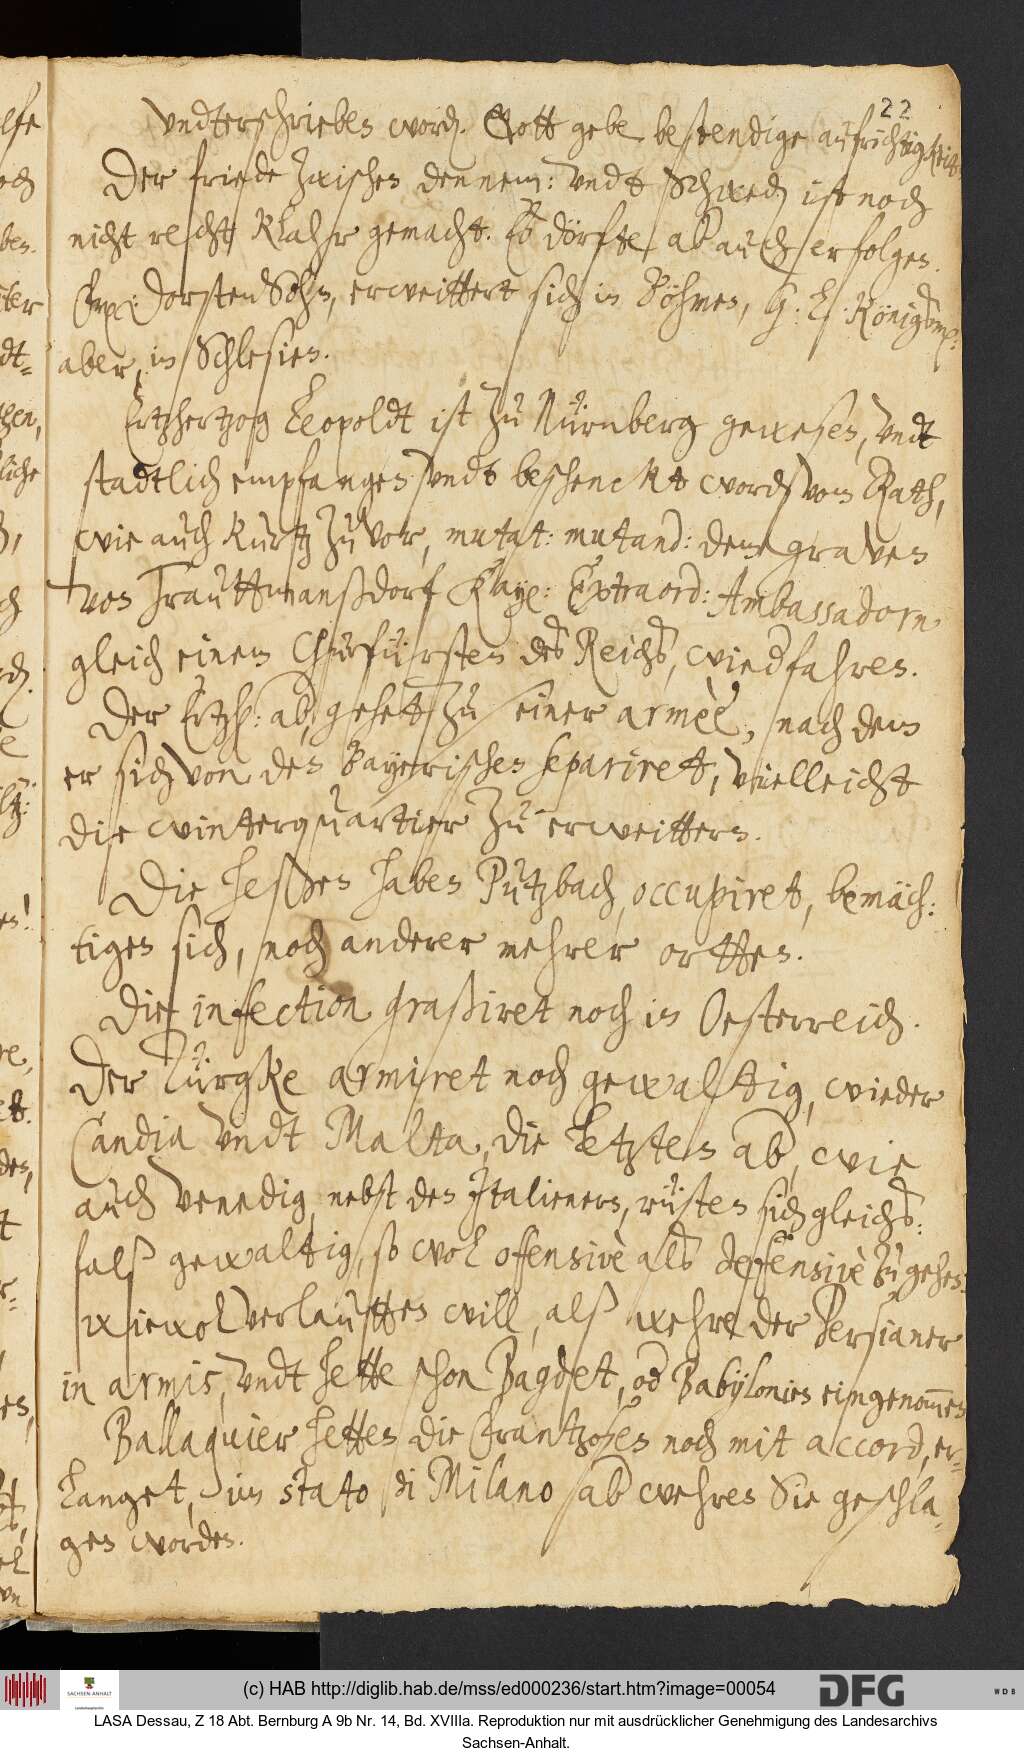 22
vndterschrieben word. Gott gebe bestendige aufrichtigkeit
Der friede zwischen dennem: vndt Schwed ist noch
nicht recht klahr gemacht. Es dörfte ab auch erfolgen.
Dorsten Sohn, erweittert sich in Böhmen, G: L: Königsm:
aber, in Schlesien.
Ertzhertzog Leopoldt ist zu Nürnberg gewesen, vndt
stadtlich empfangen vndt beschenckt word vom Rath,
wie auch kurtz zuvor, mutat: mutand: dem graven
von Trauttmanßdorf Kay: Extraord: Ambassadorn
gleich einem Churfürsten des Reichs, wiedfahren.
Der Ertzh: ab, gehett zu seiner armèè, nach dem
er sich von den Bayerischen separiret, vielleicht
die winterquartier zu erweittern.
Die Heßen haben Putzbach occupiret, bemäch:
tigen sich, noch anderer mehrer ortten.
Die infection graßiret noch in Oesterreich.
Der Türgke armiret noch gewaltig, wieder
Candia vndt Malta, die letzten ab, wie
auch Venedig nebst den Italienern, rüsten sich gleichs:
falß gewaltig, so wol offensivè als deffensivè zu gehen:
wiewol verlautten will, alß wehre der Persianer
in armis, vndt hette schon Bagdet, od Babylonien eingenommen
Ballaguier hetten die Frantzosen noch mit accord, er-
langet, im stato di Milano ab wehren Sie geschla-
gen worden.
(c) HAB http://diglib.hab.de/mss/ed000236/start.htm?image=00054
SACHSEN-ANHALT
DFG
WDB
LASA Dessau, Z 18 Abt. Bernburg A 9b Nr. 14, Bd. XVIIIa. Reproduktion nur mit ausdrücklicher Genehmigung des Landesarchivs
Sachsen-Anhalt.